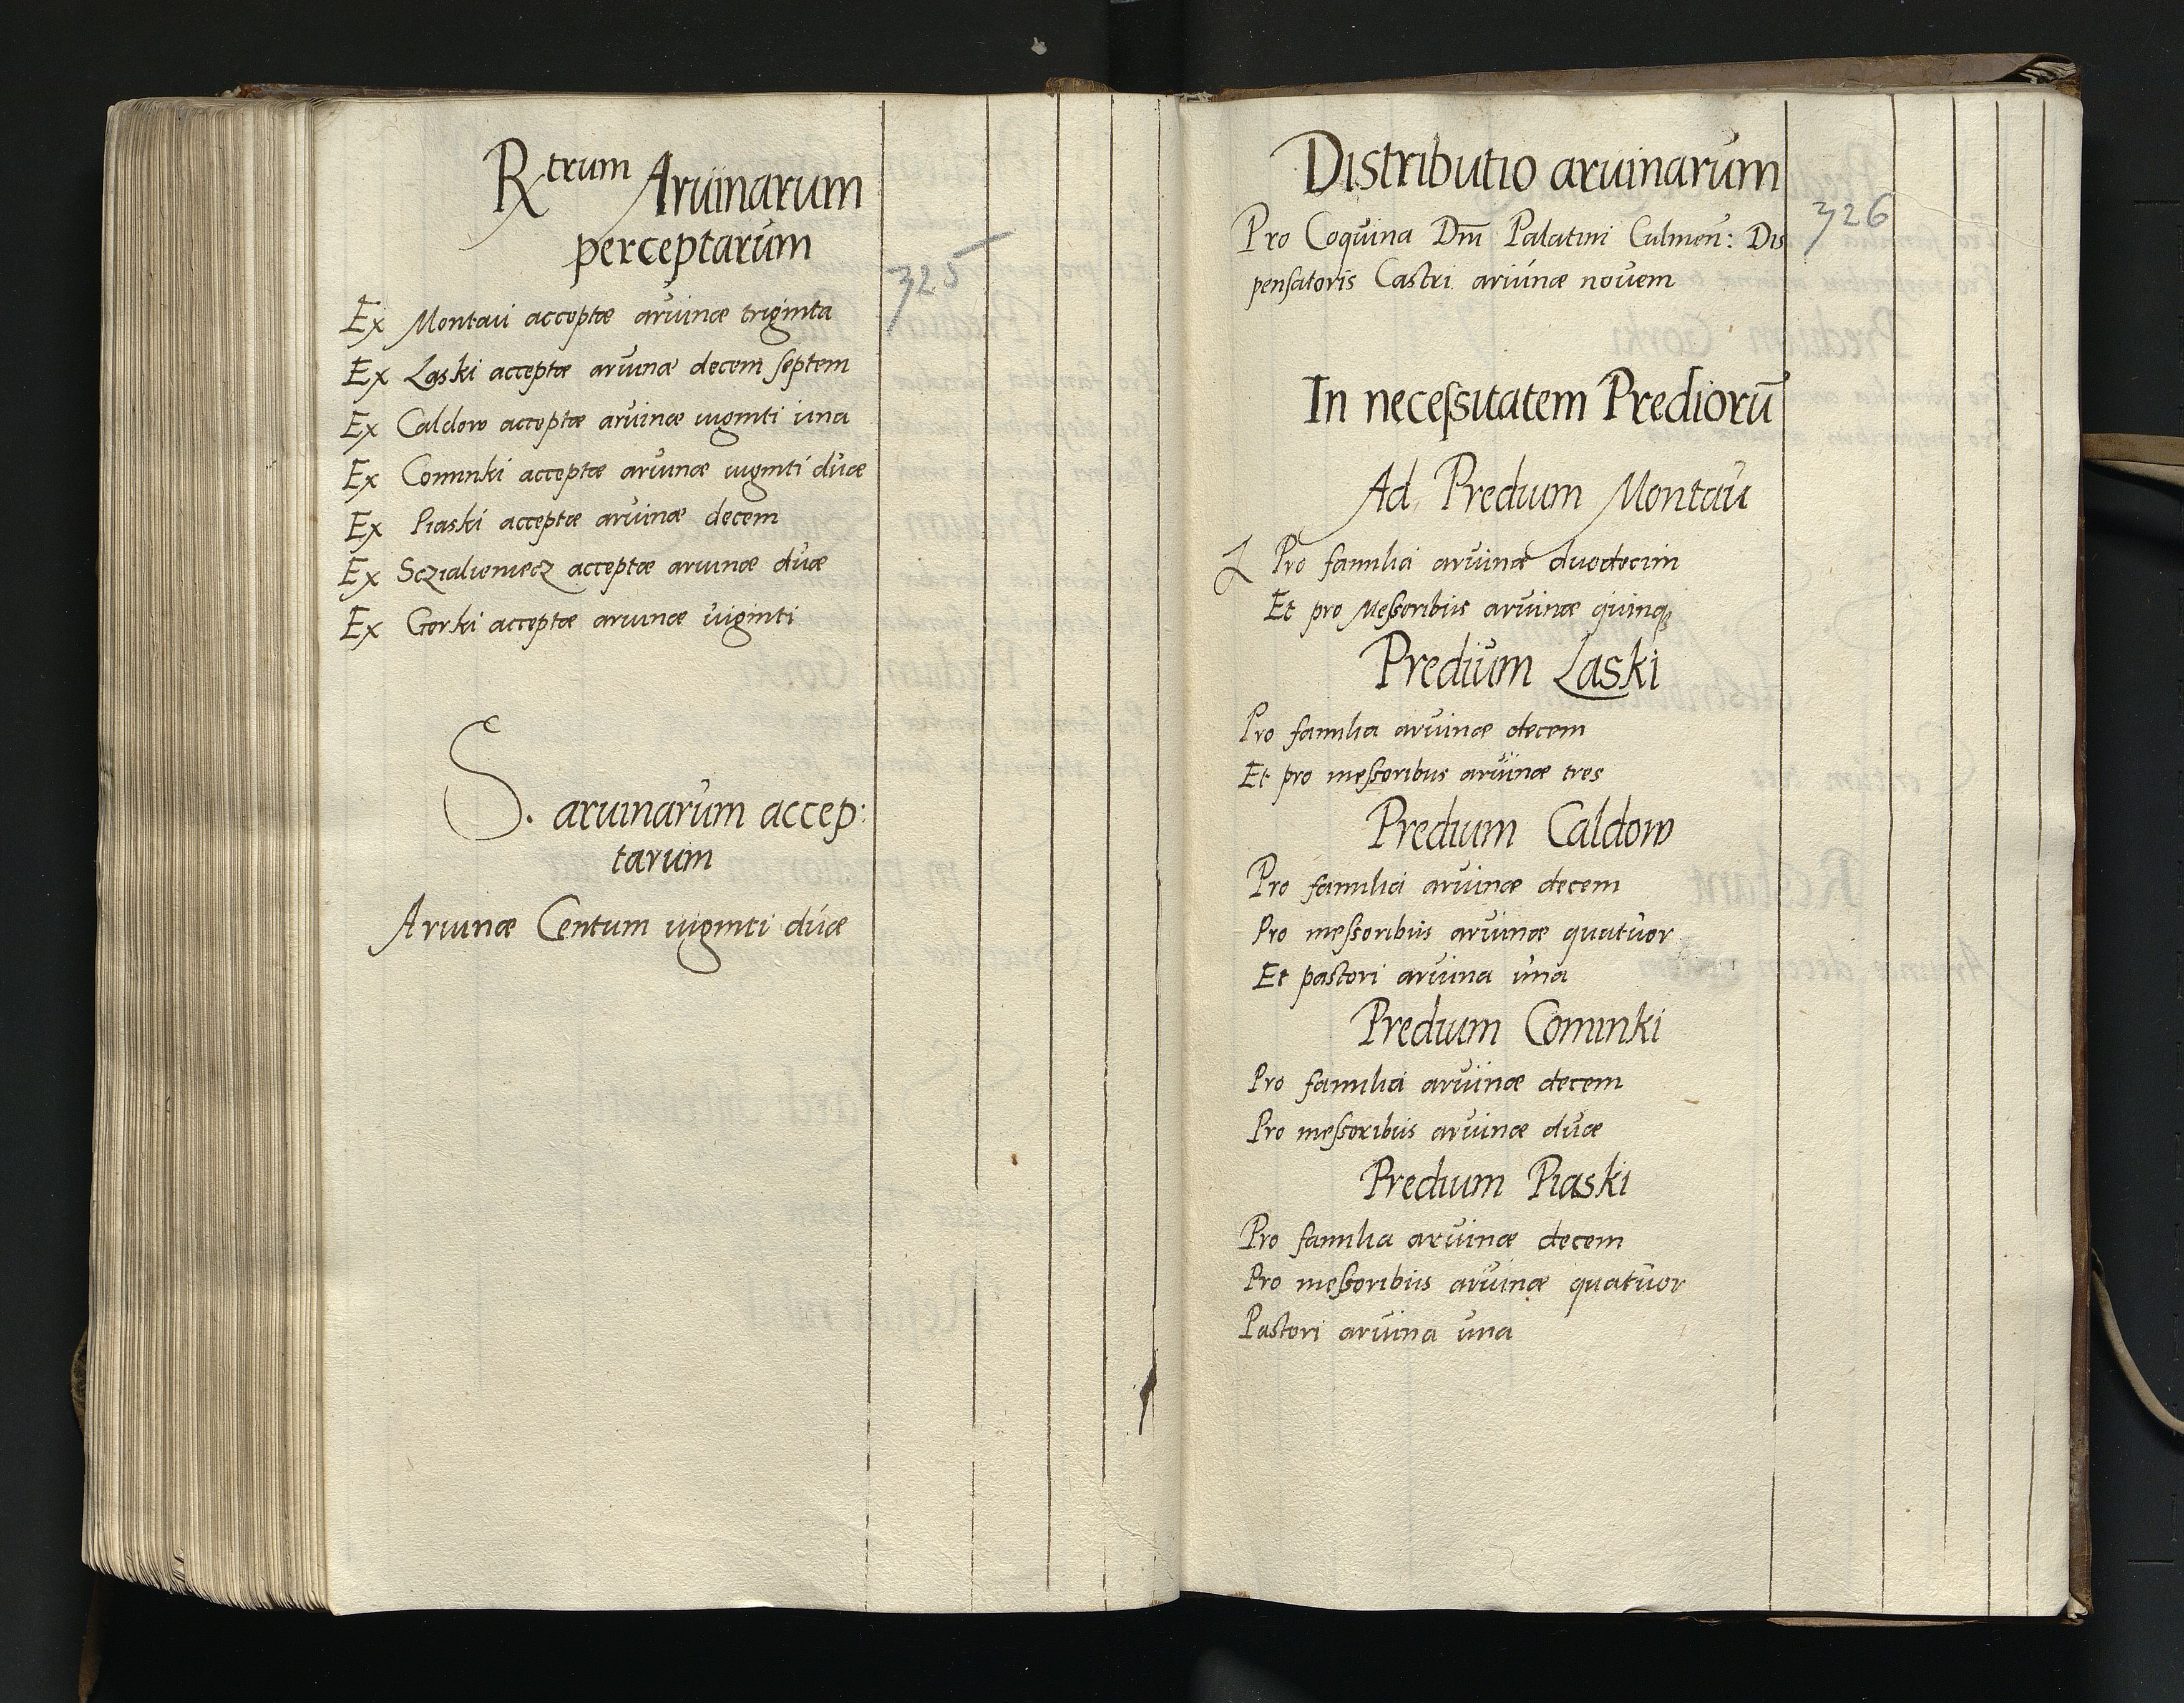 Rtrum Aruinarum
perceptarum
325
Ex Montaui acceptæ aruinæ triginta
Ex Laski acceptæ aruinæ decem septem
Ex Caldow acceptæ aruinæ uiginti una
Ex Cominki acceptæ aruinæ uiginti duæ
Ex Piaski acceptæ aruinæ decem
Ex Sczialieniecz acceptæ aruinæ duæ
Ex Gorki acceptæ aruinæ uiginti
S. aruinarum accep:
tarum
Aruinæ Centum uiginti duæ
Distributio aruinarum
326
Pro Coquina Dm̄ Palatini Culmen̄: Dis
pensatoris Castri aruinæ nouem
In necessitatem Predioru̅
Ad Predium Montau
Pro familia aruinæ duodecim
Et pro Messoribus aruinæ quinqꝫ
Predium Laski
Pro familia aruinæ decem
Et pro messoribus aruinæ tres
Predium Caldow
Pro familia aruinæ decem
Pro messoribus aruinæ quatuor
Et pastori aruina una
Predium Cominki
Pro familia aruinæ decem
Pro messoribus aruinæ duæ
Predium Piaski
Pro familia aruinæ decem
Pro messoribus aruinæ quatuor
Pastori aruina una